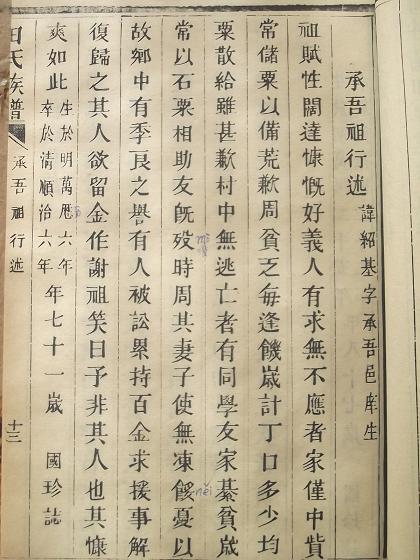 承吾祖行述 諱紹基字承吾邑庠生
祖賦性闊達慷慨好義人有求無不應者家僅中貲
常儲粟以備荒歉周貧乏每逢饑歲計丁口多少均
粟散給雖甚歉村中無逃亡者有同學友家綦貧歲
常以石粟相助友旣殁時周其妻子使無凍餒憂以
něi
故鄉中有季良之譽有人被訟累持百金求援事解
復歸之其人欲留金作謝祖笑曰予非其人也其慷
爽如此 生於明萬厯六年 卒於清順治六年 年七十一歲 國珍誌
田氏族譜 承吾祖行述 十三